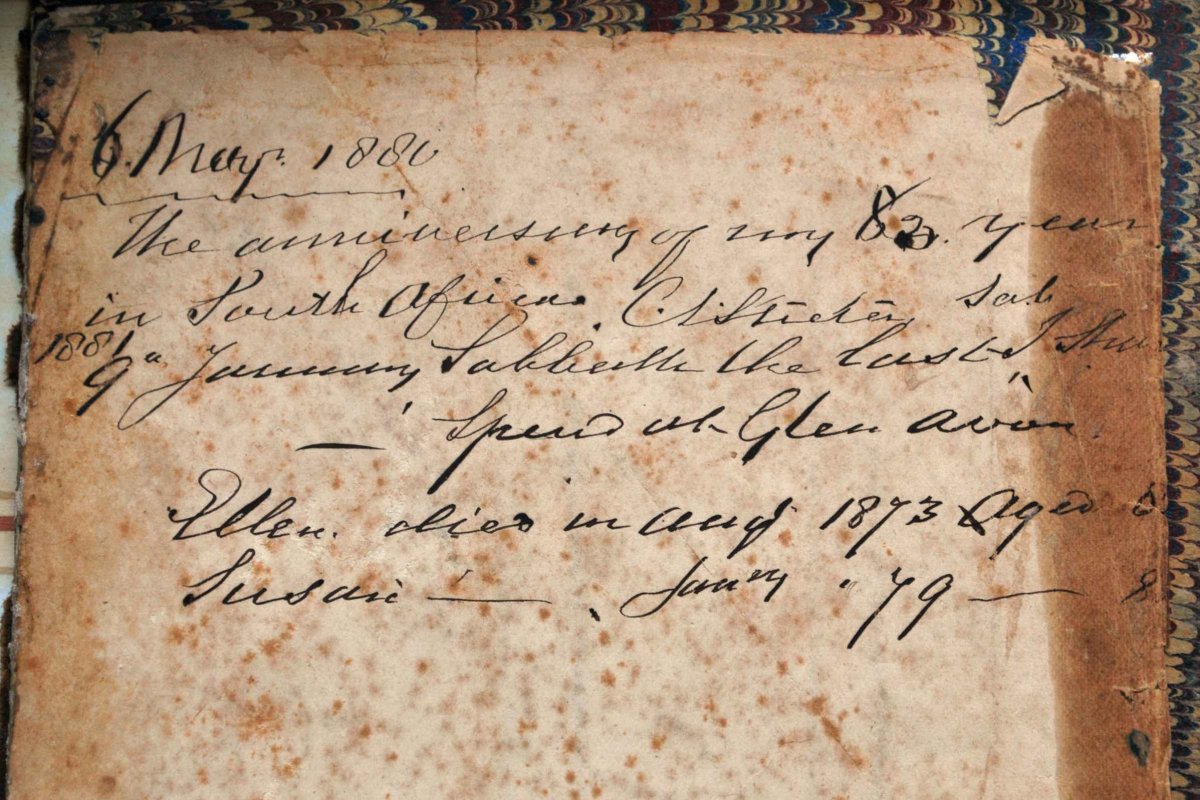 6. May. 1880
The anniversary of my year
in South Africa.
1881
9 January Sabbath the last I
spend at Glen Avon.
Ellen. died in Augt 1873 Aged
Susan — Jany " 79 — 8